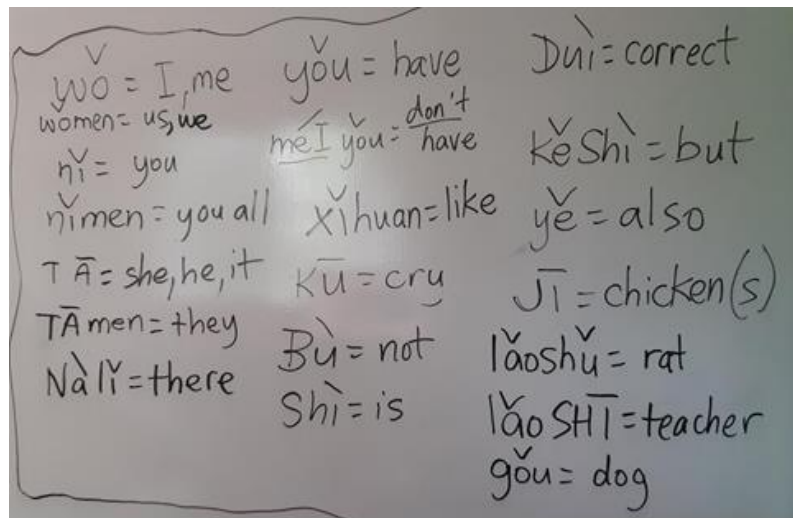 wǒ = I, me
women = us, we
nǐ = you
nǐmen = you all
TĀ = she, he, it
TĀmen = they
Nàlǐ = there
yǒu = have
méI yǒu = don't have
xǐhuan = like
Kū = cry
Bù = not
Shì = is
Duì = correct
kěShì = but
yě = also
JĪ = chicken(s)
lǎoshǔ = rat
lǎoSHĪ = teacher
gǒu = dog